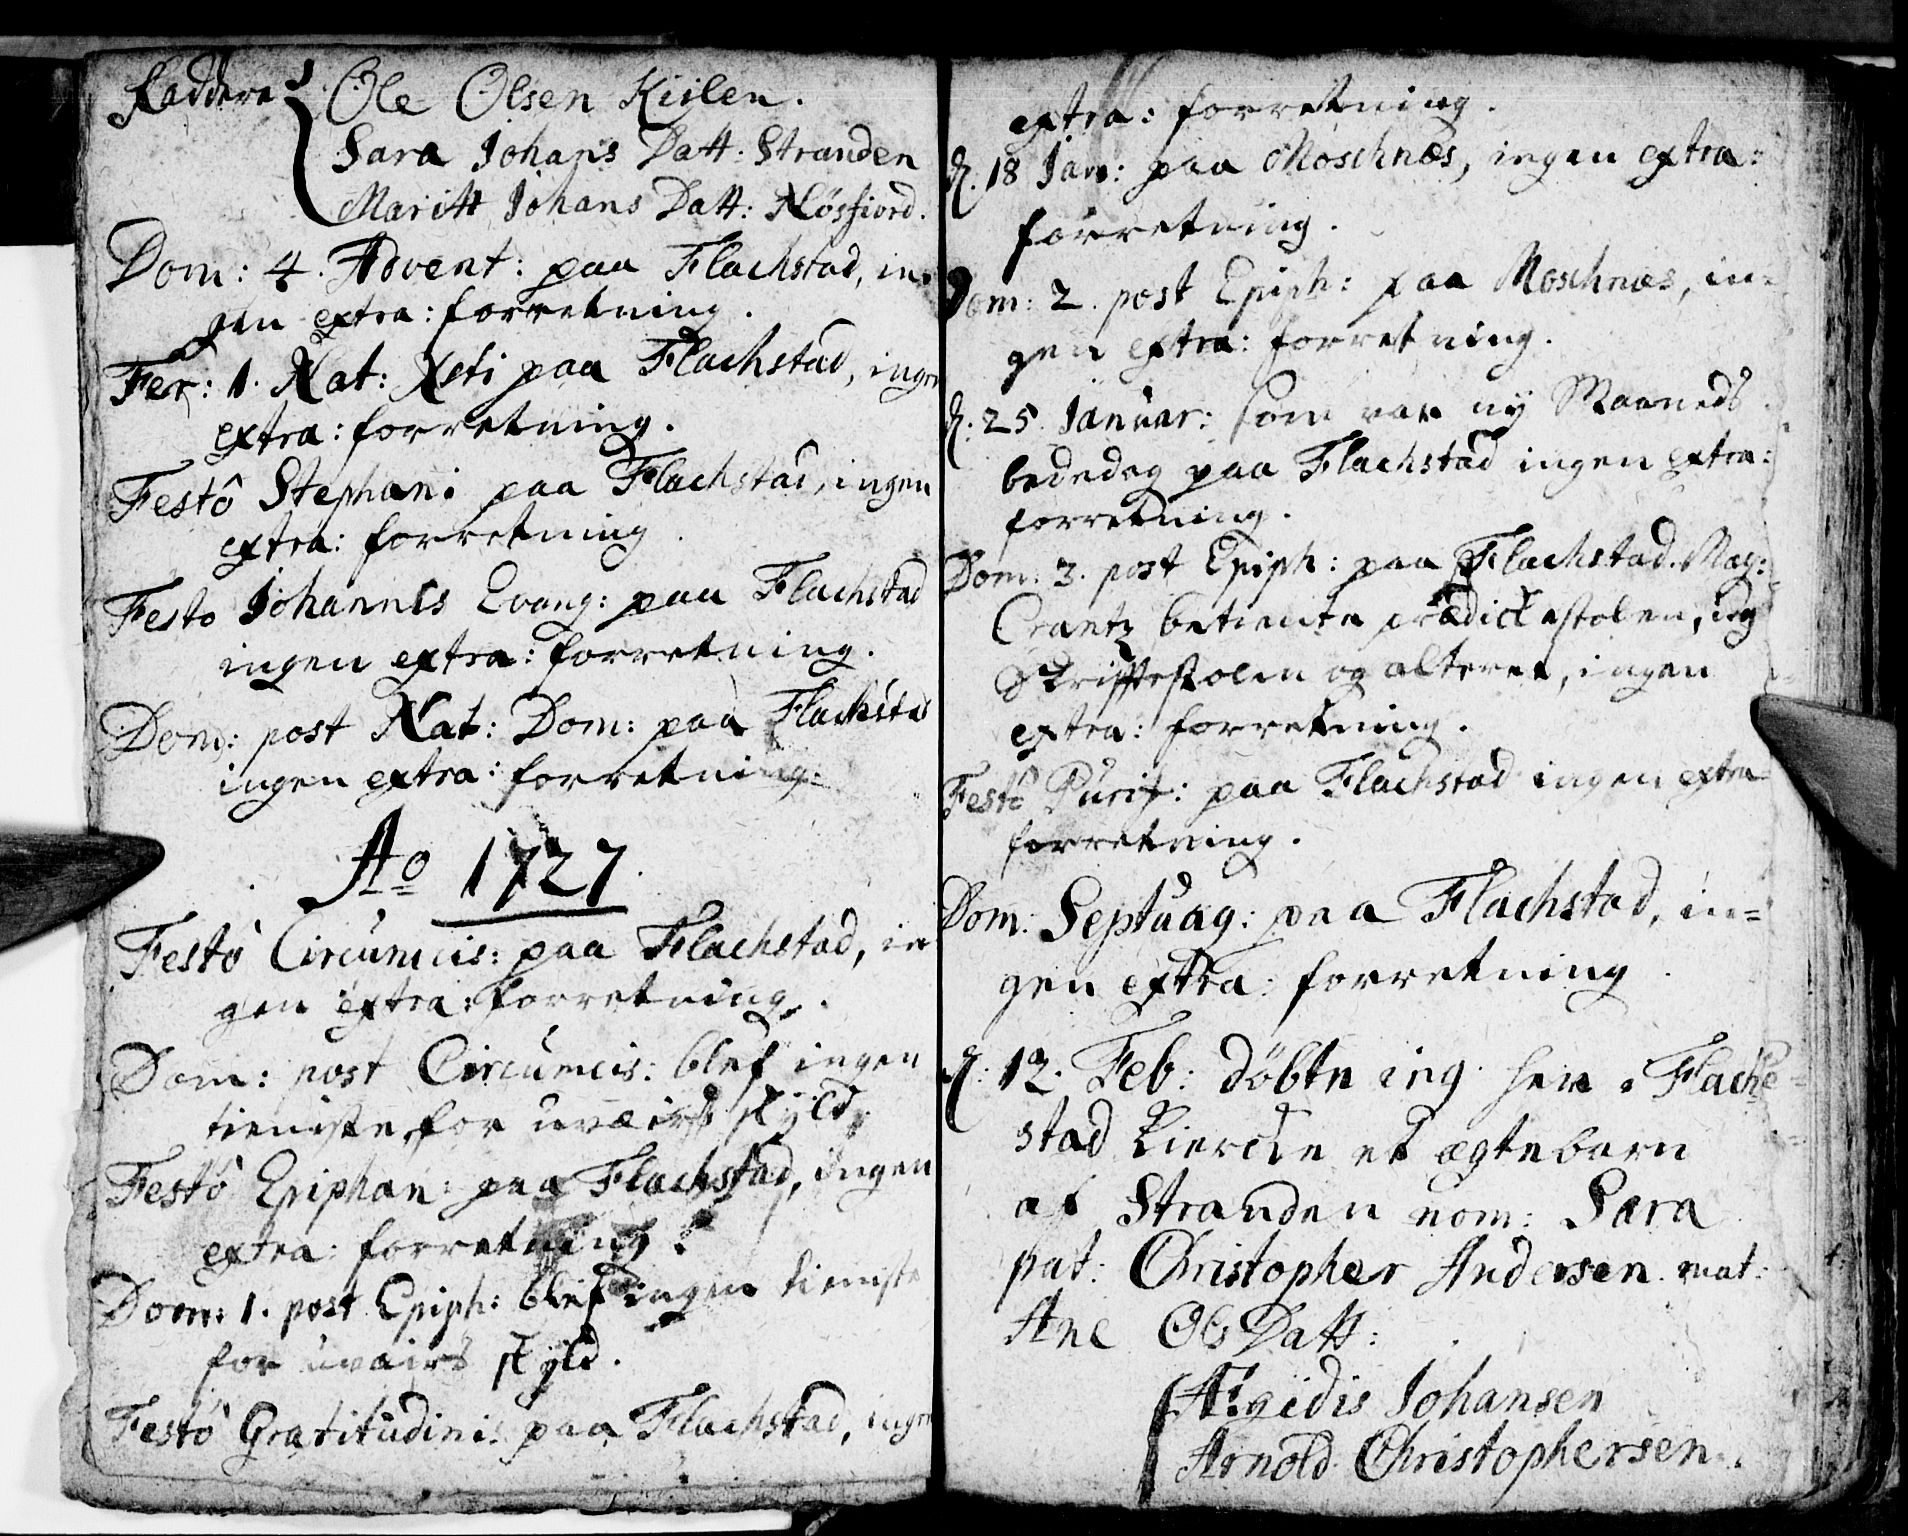 Faddere Ole Olsen Kiilen.
Sara Johans Datt: Stranden
Maritt Johans Datt: Nøsfiord.
Dom: 4. Advent: paa Flachstad, in-
gen extra: forretning.
Fer: 1. Nat: Xsti paa Flachstad, ingen
extra: forretning.
Festo Stephani paa Flachstad, ingen
extra: forretning.
Festo Johannis Evang: paa Flachstad
ingen extra: forretning.
Dom: post Nat: Dom: paa Flachstad
ingen extra: forretning.
Ao 1727.
Festo Circumcis: paa Flachstad, in
gen extra: forretning.
Dom: post Circumcis: blef ingen
tieniste for uvæirs skyld.
Festo Epiphan: paa Flachstad, ingen
extra: forretning.
Dom: 1. post Epiph: blef ingen tieniste
for uvæirs skyld.
Festo Gratitudinis paa Flachstad, ingen
extra: forretning.
d. 18 Jan: paa Moschnæs, ingen extra:
forretning.
Dom: 2. post Epiph: paa Moschnæs, in-
gen extra: forretning.
d. 25. Januar: som var ny Maaneds
bededag paa Flachstad ingen extra:
forretning.
Dom: 3. post Epiph: paa Flachstad. Mag:
Crantz betiente prædickestolen, ieg
Skriftestolen og alteret, ingen
extra: forretning.
Festo Purif: paa Flachstad ingen extra
forretning.
Dom: Septuag: paa Flachstad, in-
gen extra: forretning.
d: 12. Feb: døbte ieg her i Flach-
stad Kiercke et ægtebarn
af Stranden nom: Sara
pat: Christopher Andersen. mat:
Ane Ols Datt:
Ægidis Johansen
Arnold Christophersen.